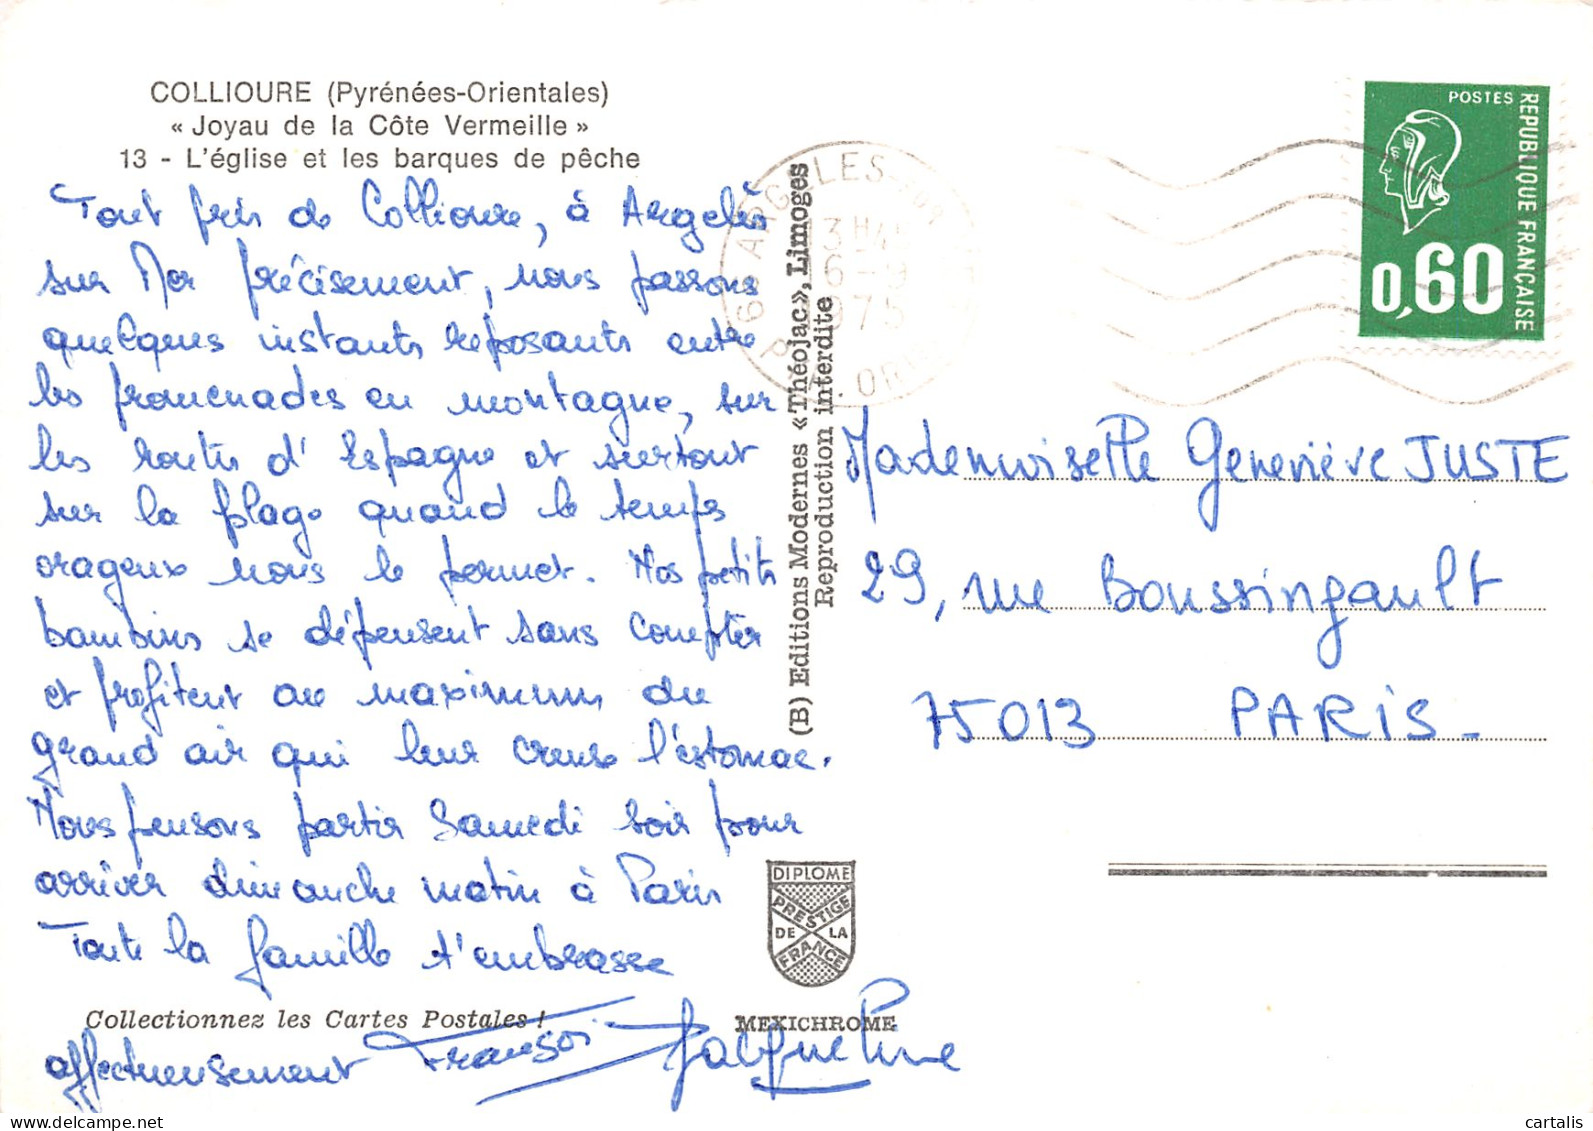 COLLIOURE (Pyrénées-Orientales)
« Joyau de la Côte Vermeille »
13 - L'église et les barques de pêche
Tout près de Collioure, à Argelès
sur Mer précisement, nous passons
quelques instants reposants entre
les promenades en montagne, sur
les routes d'Espagne et surtout
sur la plage quand le temps
orageux nous le permet. Nos petits
bambins se dépensent sans compter
et profitent au maximum du
grand air qui leur creuse l'estomac.
Nous pensons partir Samedi soir pour
arriver dimanche matin à Paris
Toute la famille t'embrasse
Collectionnez les Cartes Postales !
affectueusement François Jacqueline
(B) Editions Modernes «Théojac», Limoges
Reproduction interdite
DIPLOME
PRESTIGE
DE LA
FRANCE
MEXICHROME
66 ARGELES-SUR-
13H4
6-9
1975
OR
POSTES
REPUBLIQUE FRANÇAISE
0,60
Mademoiselle Geneviève JUSTE
29, rue Boussingault
75013 PARIS-
cartalis